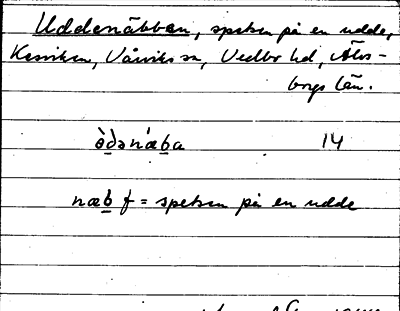 Uddenäbban, spetsen på en udde,
Kesviken, Vårviks sn, Vedbo hd, Älvs-
borgs län.
ò̱ḏən'æḇa 14
næḇ f = spetsen på en udde